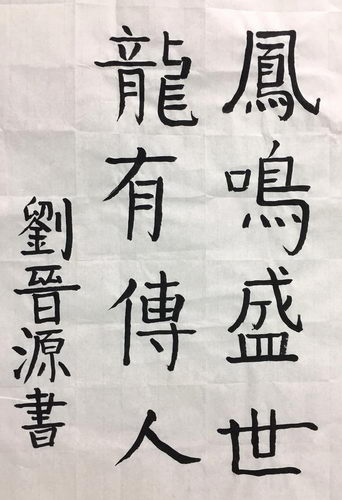 鳳鳴盛世
龍有傳人
劉晉源書